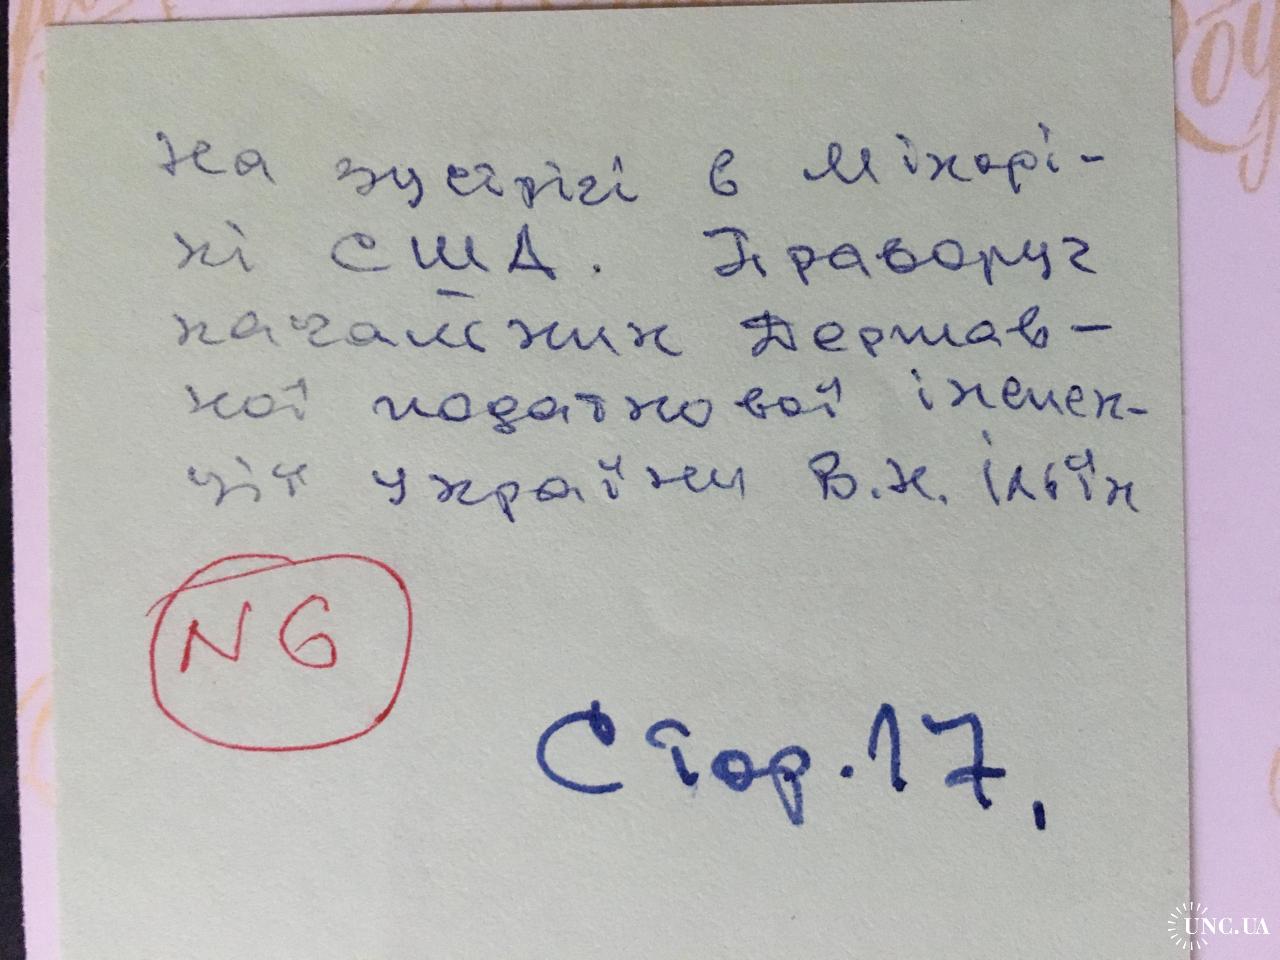 На зустрічі в Мінфі-
ні США. Праворуч
начальник Держав-
ної податкової інспек-
ції України В.К. Ільїн
N6
Стор. 17.
UNC.UA